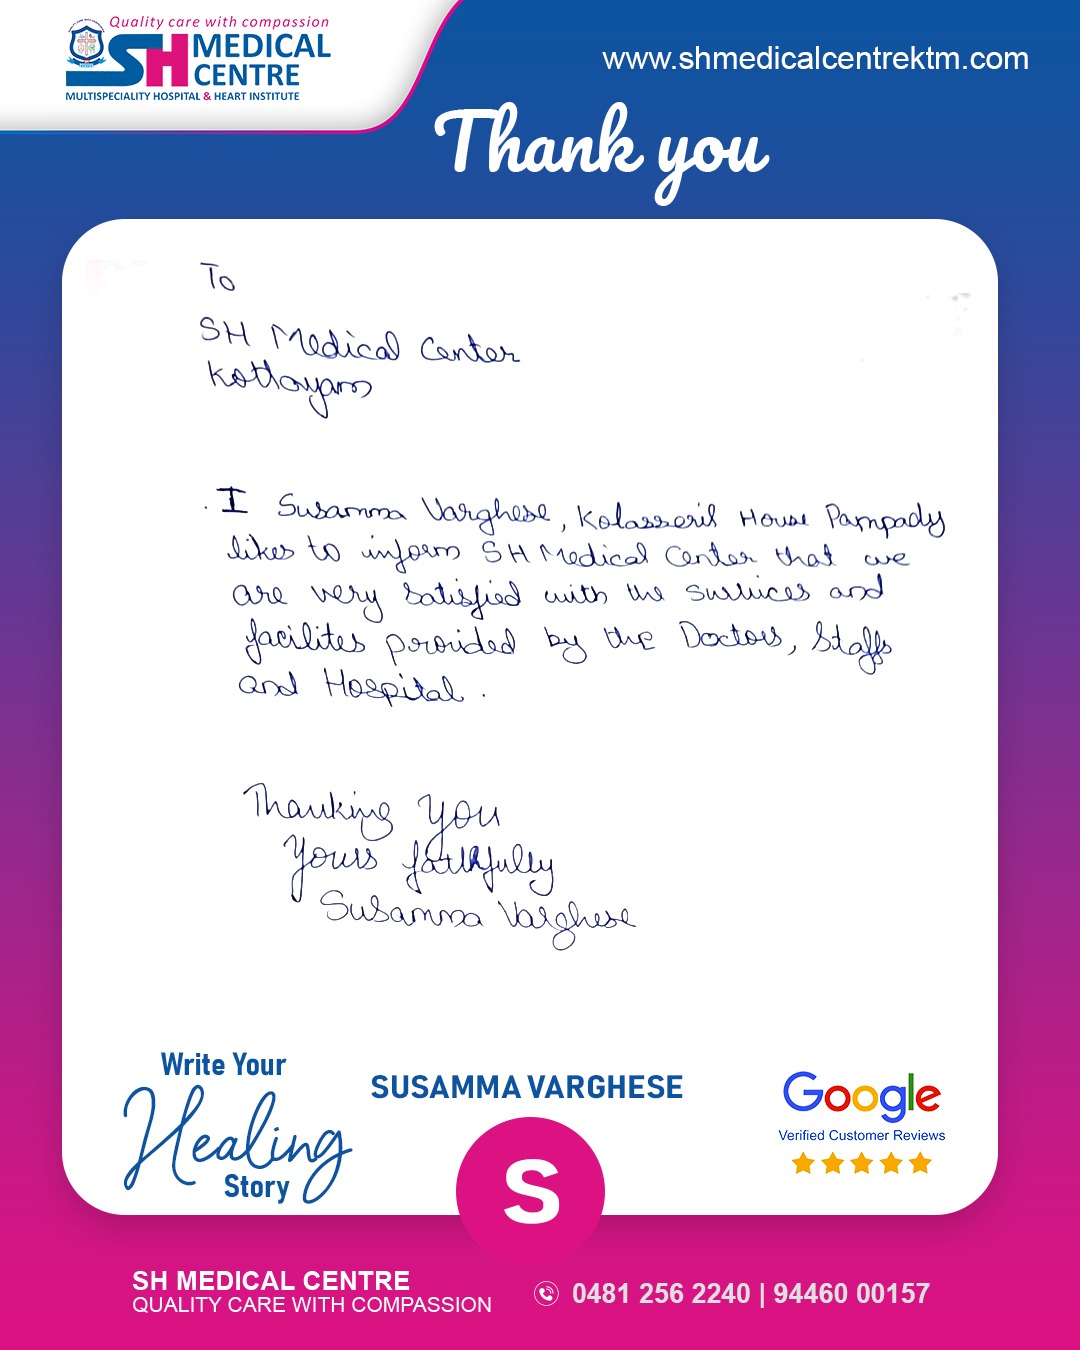 Quality care with compassion
SH MEDICAL CENTRE
MULTISPECIALITY HOSPITAL & HEART INSTITUTE
www.shmedicalcentrektm.com
Thank you
To
SH Medical Center
Kottayam
. I Susamma Varghese, Kolasseril House Pampady
likes to inform SH Medical Center that we
are very satisfied with the survices and
facilites provided by the Doctors, Staffs
and Hospital.
Thanking You
Yours faithfully
Susamma Varghese
Write Your
Healing
Story
SUSAMMA VARGHESE
S
Google
Verified Customer Reviews
SH MEDICAL CENTRE
QUALITY CARE WITH COMPASSION
0481 256 2240 | 94460 00157